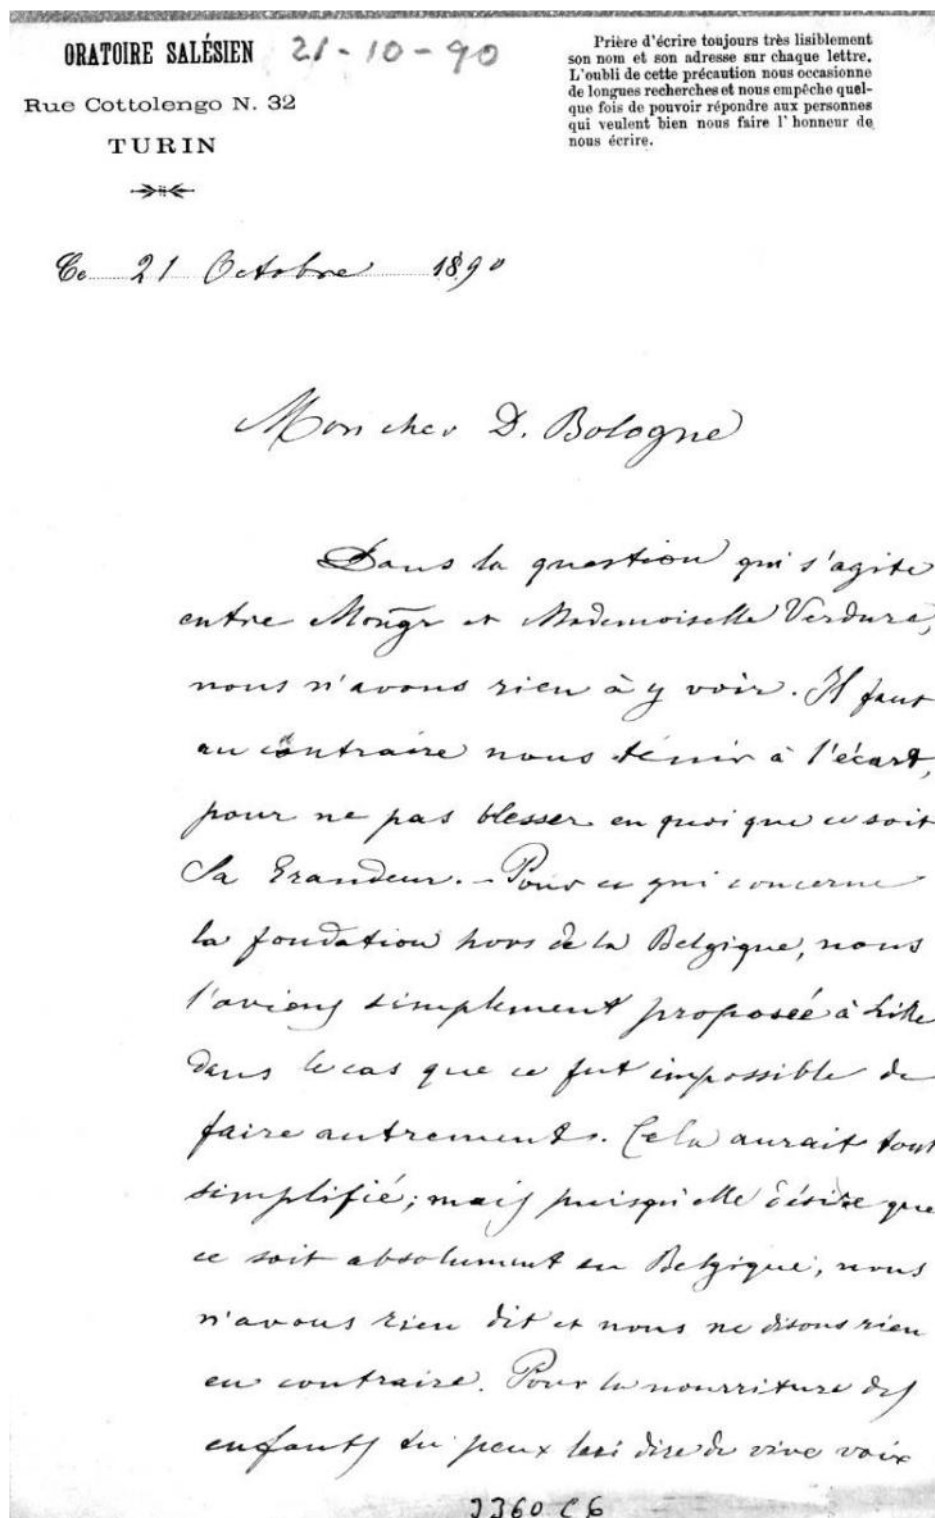 ORATOIRE SALÉSIEN
21-10-90
Rue Cottolengo N. 32
TURIN
Prière d'écrire toujours très lisiblement
son nom et son adresse sur chaque lettre.
L'oubli de cette précaution nous occasionne
de longues recherches et nous empêche quel-
que fois de pouvoir répondre aux personnes
qui veulent bien nous faire l'honneur de
nous écrire.
Ce 21 Octobre 1890
Mon cher D. Bologne
Dans la question qui s'agite
entre Mongr et Mademoiselle Verdure,
nous n'avons rien à y voir. Il faut
au contraire nous tenir à l'écart,
pour ne pas blesser en quoi que ce soit
Sa Grandeur. - Pour ce qui concerne
la fondation hors de la Belgique, nous
l'avions simplement proposée à Lille
dans le cas que ce fut impossible de
faire autrement. Cela aurait tout
simplifié; mais puisqu'elle désire que
ce soit absolument en Belgique, nous
n'avons rien dit et nous ne disons rien
en contraire. Pour la nourriture des
enfants tu peux lui dire de vive voix
3360 C6